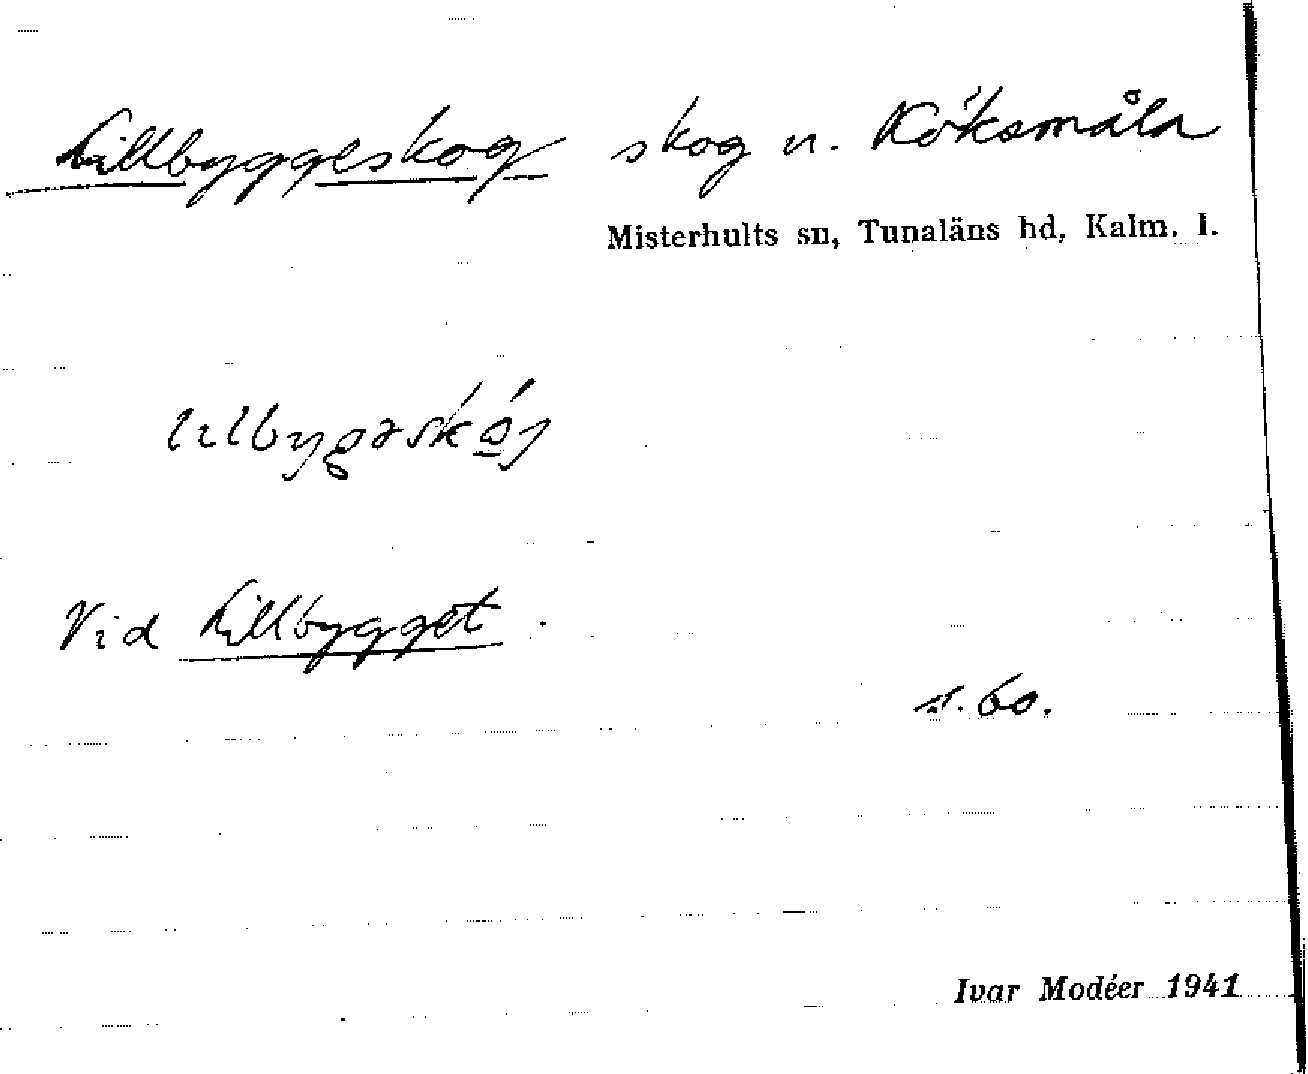 Lillbyggeskog skog u. Köksmåla
Misterhults sn, Tunaläns hd, Kalm. l.
Vid Lillbygget.
60.
Ivar Modéer 1941